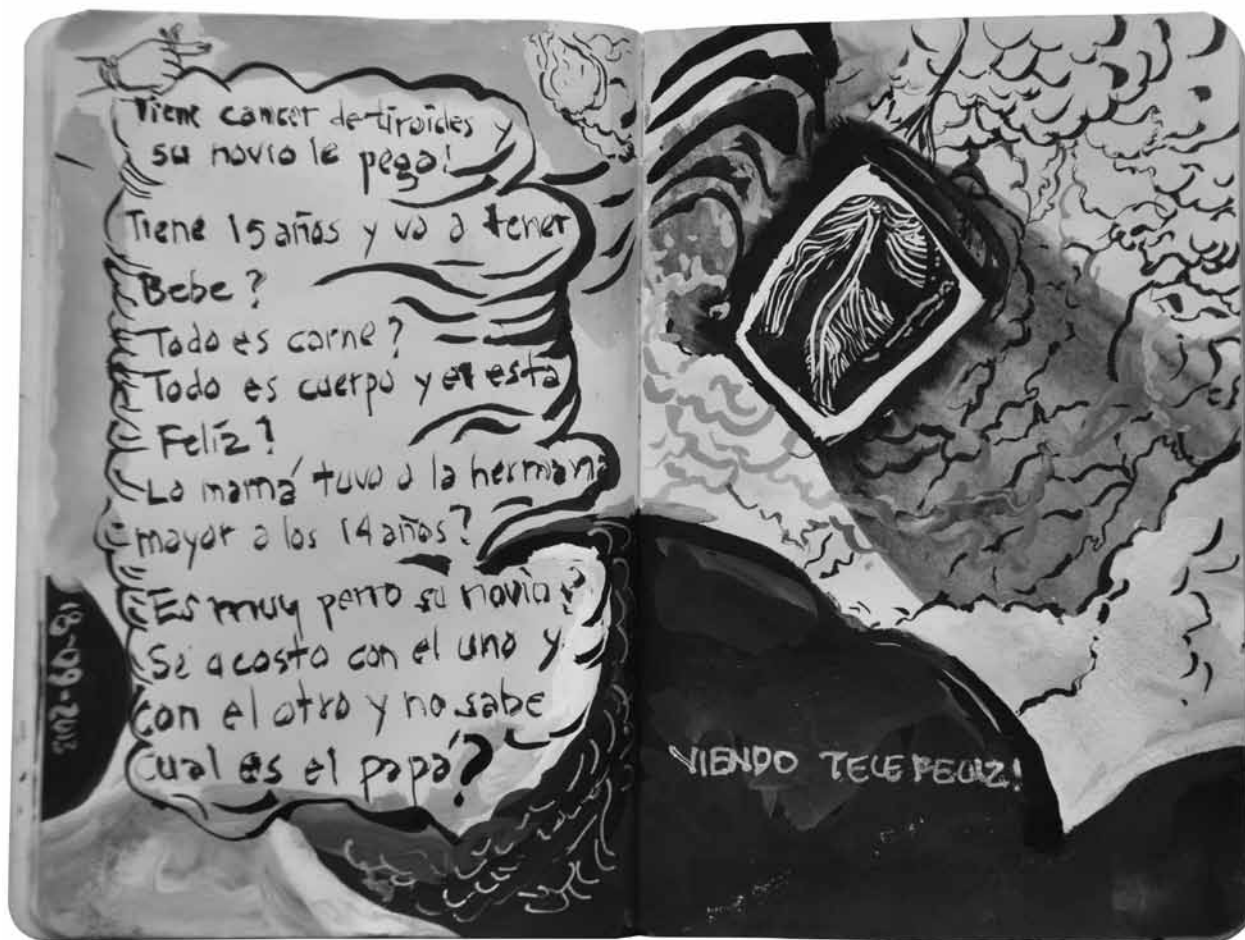 Tiene cancer de tiroides y
su novio le pego!
Tiene 15 años y va a tener
Bebe?
Todo es carne?
Todo es cuerpo y el esta
Feliz?
La mamá tuvo a la hermana
mayor a los 14 años?
Es muy perro su novio?
Se acosto con el uno y
con el otro y no sabe
cual es el papá?
VIENDO TELE FELIZ!